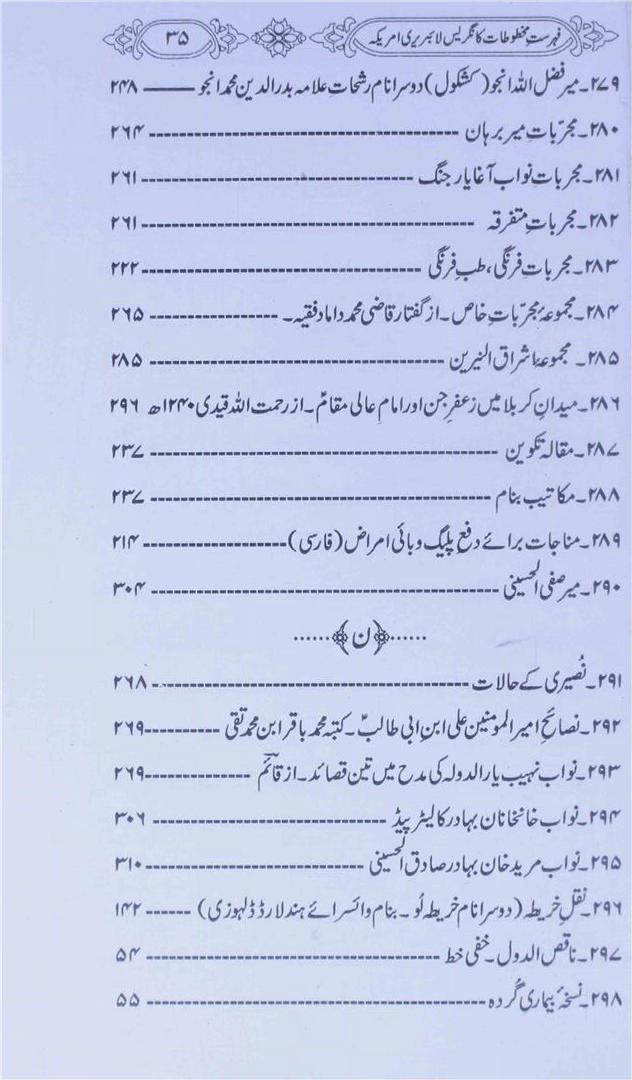 فہرستِ مخطوطات کانگریس لائبریری امریکہ
۳۵
۲۷۹۔میر فضل اللہ انجو (کشکول) دوسرا نام رشحات علامہ بدرالدین محمد انجو ـــــــــ ۲۴۸
۲۸۰۔مجرّباتِ میر برہان ------------------------------ ۲۶۴
۲۸۱۔مجربات نواب آغا یار جنگ ------------------------------ ۲۶۱
۲۸۲۔مجرباتِ متفرقہ ------------------------------ ۲۶۱
۲۸۳۔مجرباتِ فرنگی، طبِ فرنگی ------------------------------ ۲۲۲
۲۸۴۔مجموعۂ مجرّباتِ خاص۔از گفتار قاضی محمد داماد فقیہ۔ -------------- ۲۶۵
۲۸۵۔ مجموعۂ اشراق النیرین ------------------------------ ۲۸۵
۲۸۶۔میدانِ کربلا میں زعفرِ جن اور امامِ عالی مقامؑ۔از رحمت اللہ قیدی ۱۲۴۰ھ ۲۹۶
۲۸۷۔مقالہ تکوین ------------------------------ ۲۳۷
۲۸۸۔مکاتیب بنام ------------------------------ ۲۳۷
۲۸۹۔مناجات برائے دفعِ پلیگ وبائی امراض (فارسی) -------------- ۲۱۴
۲۹۰۔میر صفی الحسینی ------------------------------ ۳۰۴
......﴿ن﴾......
۲۹۱۔نُصیری کے حالات ------------------------------ ۲۶۸
۲۹۲۔نصائحِ امیرالمومنین علی ابنِ ابی طالبؑ۔کتبہ محمد باقر ابن محمد تقی ----------۲۶۹
۲۹۳۔نواب نہیب یارالدولہ کی مدح میں تین قصائد۔از قائم ------------۲۶۹
۲۹۴۔نواب خانخانان بہادر کا لیٹر پیڈ ---------------------- ۳۰۶
۲۹۵۔نواب مرید خان بہادر صادق الحسینی ---------------------- ۳۱۰
۲۹۶۔نقلِ خریطہ (دوسرا نام خریطہ نُو۔بنام وائسرائے ہند لارڈ ڈلہوزی) ------ ۱۴۲
۲۹۷۔ناقص الدول۔خفی خط ------------------------------ ۵۴
۲۹۸۔نسخۂ بیماری گُردہ ------------------------------ ۵۵